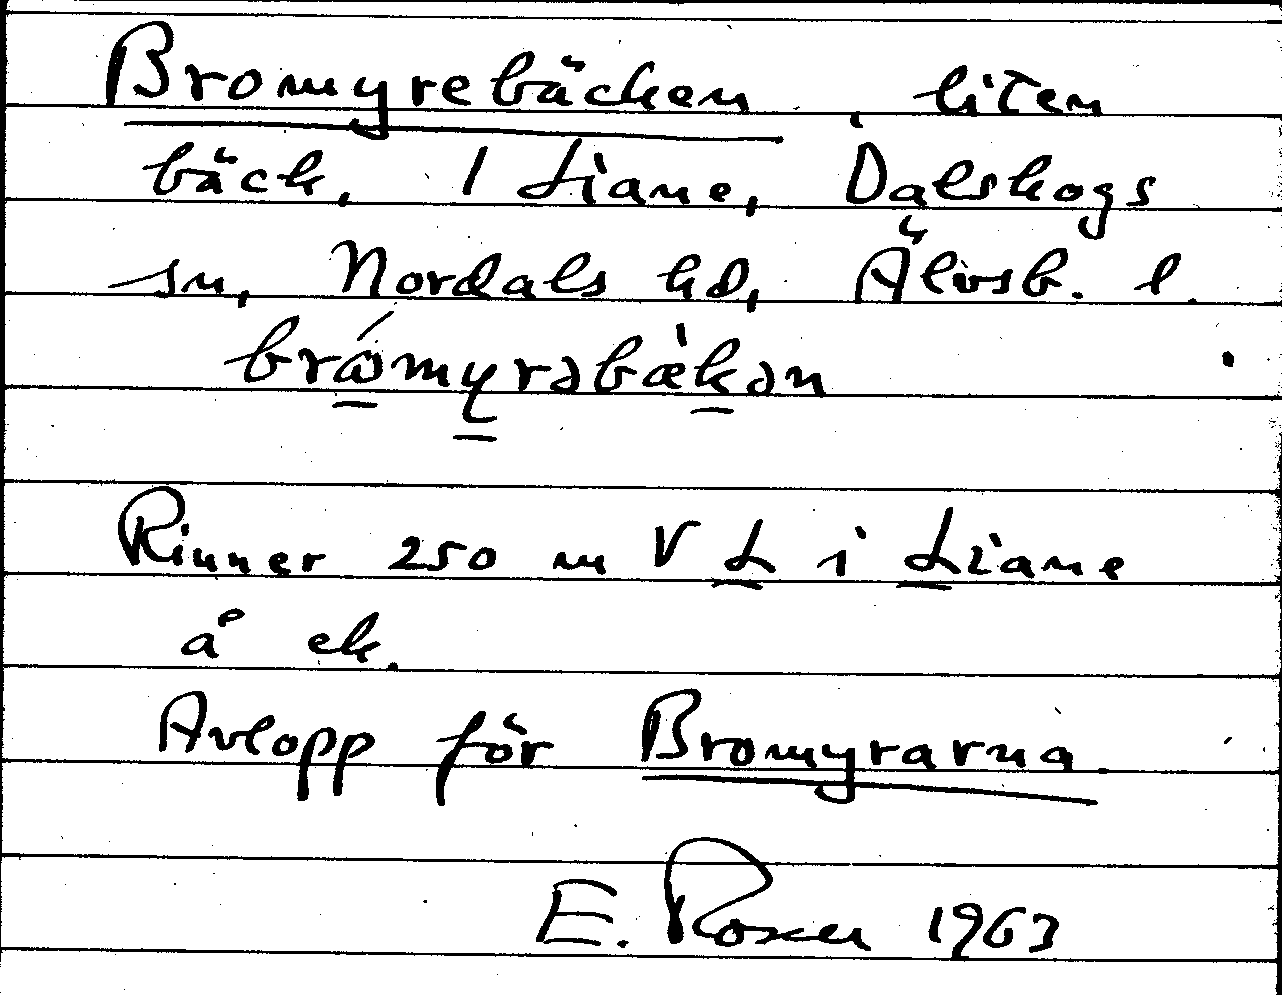 Bromyrebäcken, liten
bäck, 1 Liane, Dalskogs
sn, Nordals hd, Älvsb. l.
brómyrəbæ̀kən
Rinner 250 m V L i Liane
å ek.
Avlopp för Bromyrarna.
E. Rosell 1963